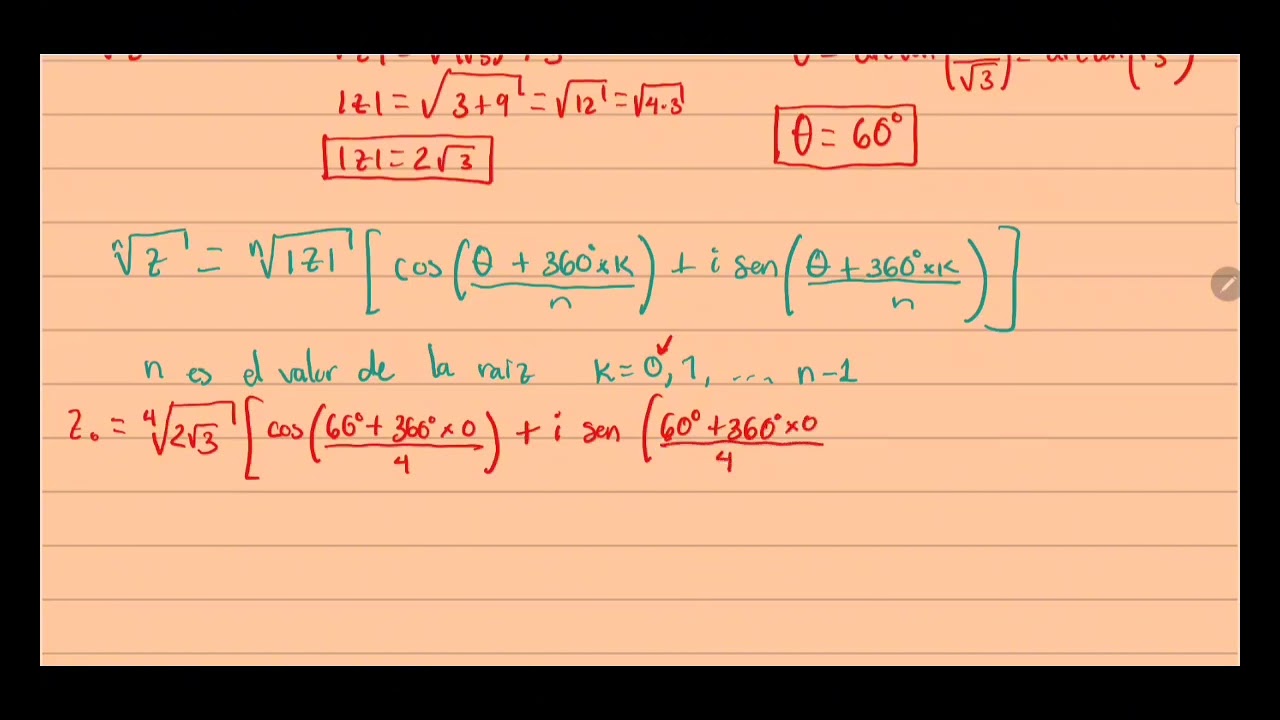 |z| = √(3+9) = √12 = √(4·3)
|z| = 2√3
θ = 60°
ⁿ√z = ⁿ√|z| [cos((θ + 360°×k)/n) + i sen((θ + 360°×k)/n)]
n es el valor de la raiz k=0, 1, .... n-1
z₀ = ⁴√(2√3) [cos((60°+ 360°×0)/4) + i sen ((60°+360°×0)/4